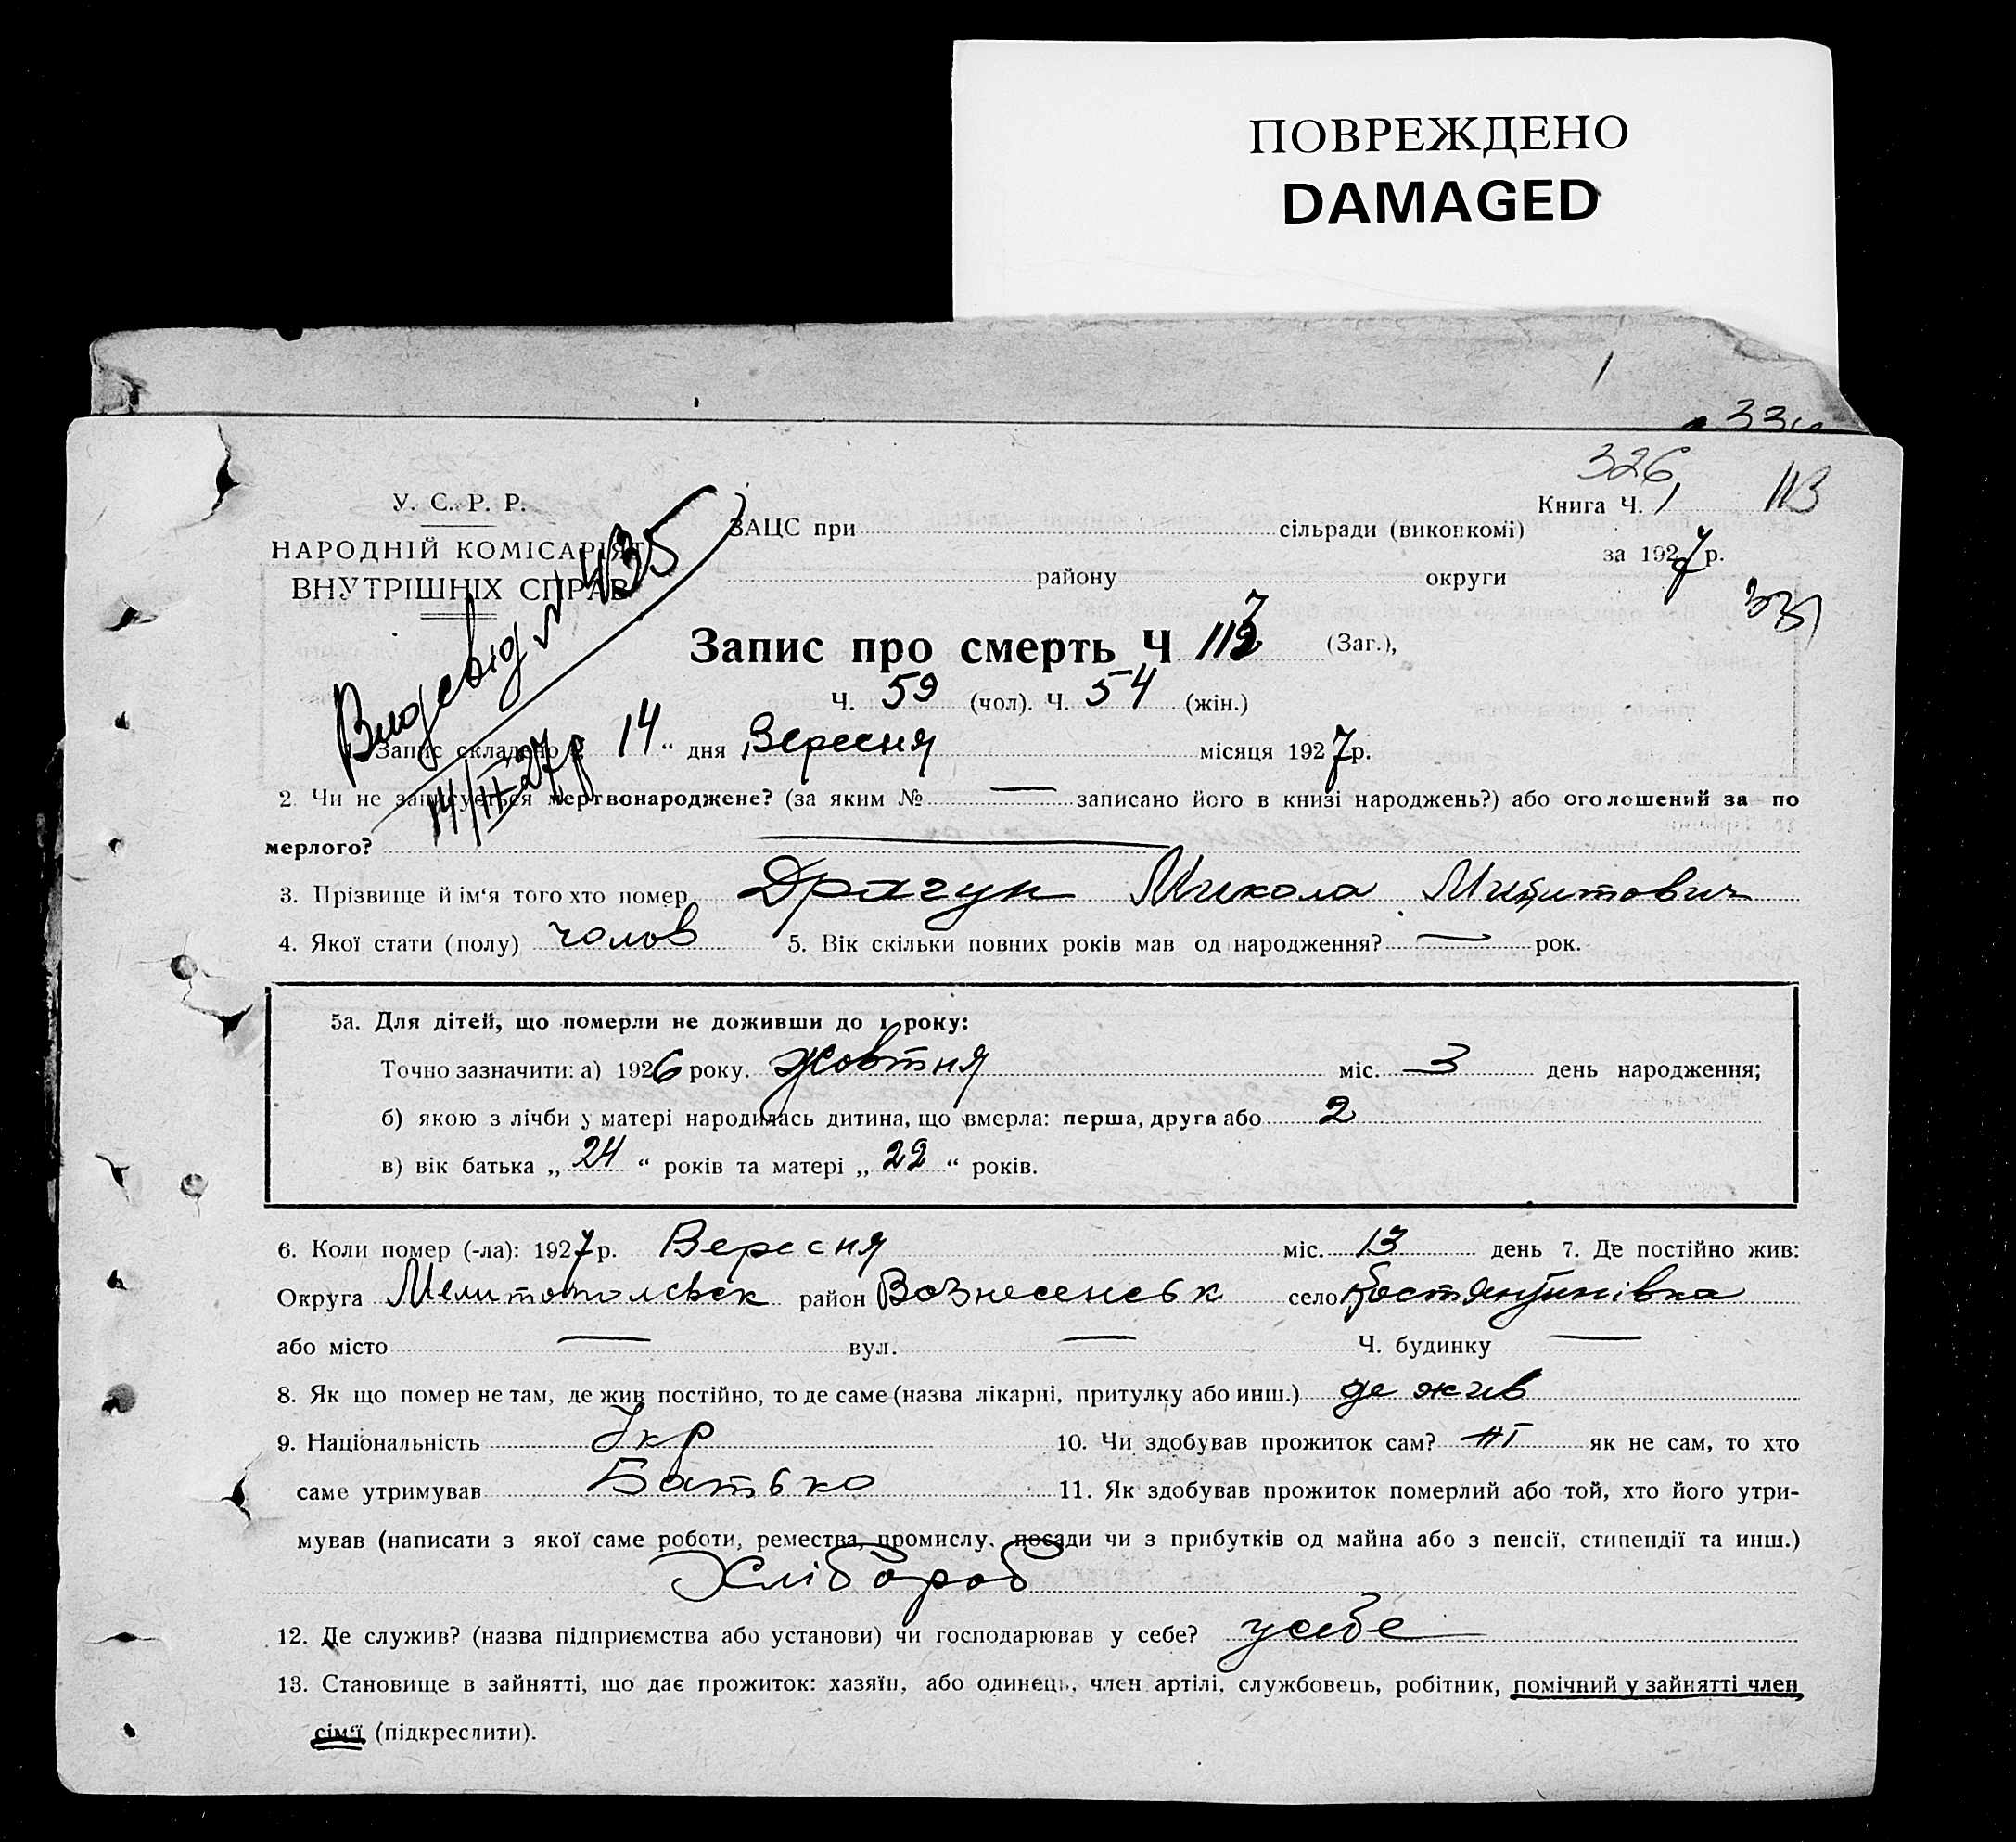 ПОВРЕЖДЕНО
DAMAGED
326
У. С. Р. Р.
НАРОДНІЙ КОМІСАРІЯТ
ВНУТРІШНІХ СПРАВ
ЗАЦС при сільради (виконкомі)
району округи
Книга Ч. 1 113
за 1927 р.
331
Видевід № 435
14/IX-27 р
Запис про смерть Ч 113 (Заг.),
Ч. 59 (чол). Ч. 54 (жін.)
Запис складено 14“ дня Вересня місяця 1927 р.
2. Чи не записується мертвонароджене? (за яким № — записано його в книзі народжень?) або оголошений за по
мерлого?
3. Прізвище й ім‘я того хто помер Драгун Микола Микитович
4. Якої стати (полу) чолов 5. Вік скільки повних років мав од народження? — рок.
5а. Для дітей, що померли не доживши до 1 року:
Точно зазначити: а) 1926 року. Жовтня міс. 3 день народження;
б) якою з лічби у матері народилась дитина, що вмерла: перша, друга або 2
в) вік батька „ 24 “ років та матері „ 22 “ років.
6. Коли помер (-ла): 1927 р. Вересня міс. 13 день 7. Де постійно жив:
Округа Мелитопольськ район Вознесенськ село Костянтинівка
або місто — вул. — Ч. будинку —
8. Як що помер не там, де жив постійно, то де саме (назва лікарні, притулку або инш.) де жив
9. Національність Укр 10. Чи здобував прожиток сам? ні як не сам, то хто
саме утримував Батько 11. Як здобував прожиток померлий або той, хто його утри-
мував (написати з якої саме роботи, ремества, промислу, посади чи з прибутків од майна або з пенсії, стипендії та инш.)
Хлібороб
12. Де служив? (назва підприємства або установи) чи господарював у себе? у себе
13. Становище в зайнятті, що дає прожиток: хазяїн, або одинець, член артілі, службовець, робітник, помічний у зайнятті член
сім‘ї (підкреслити).